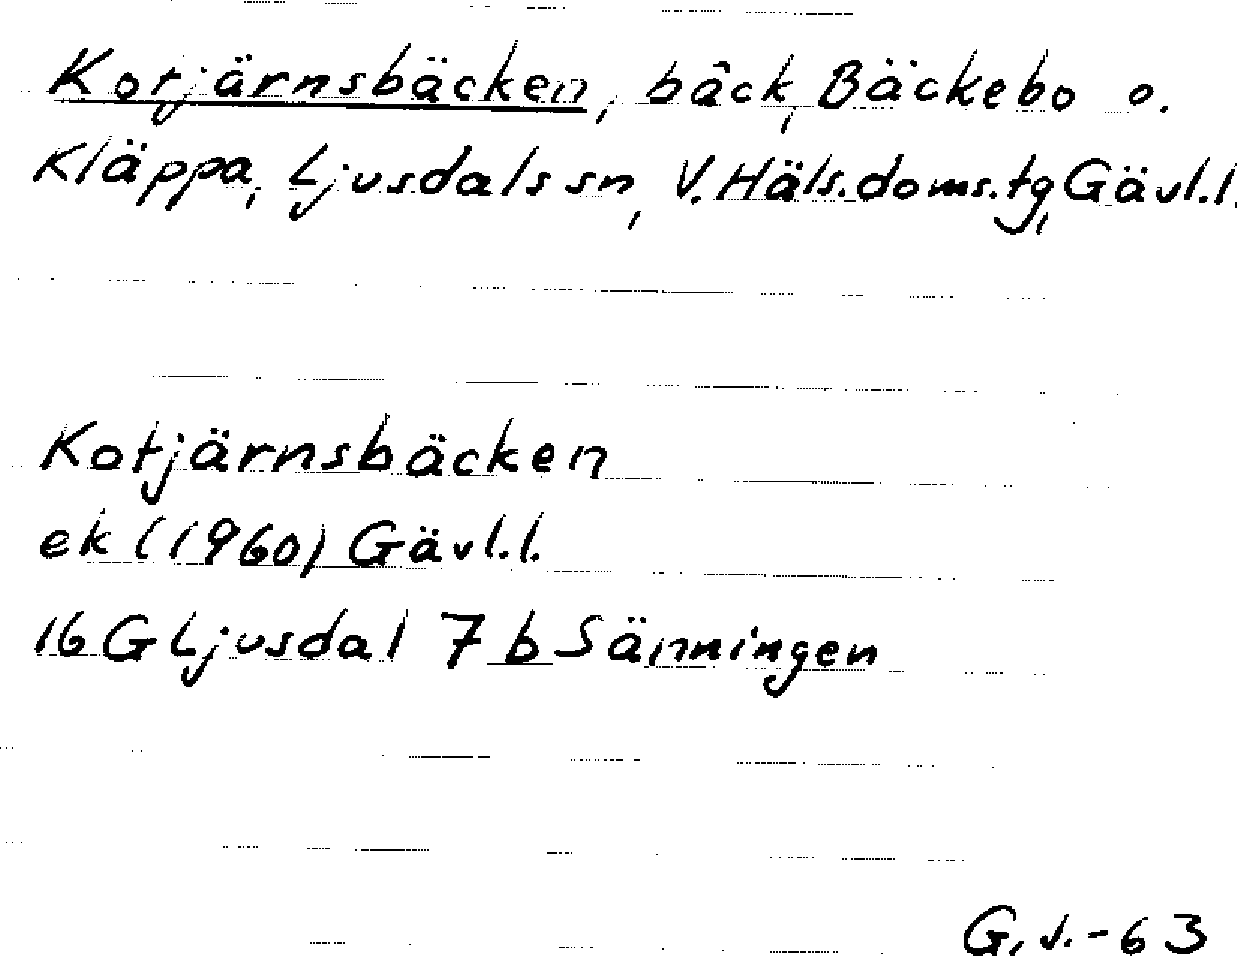 Kotjärnsbäcken, bäck, Bäckebo o.
Kläppa, Ljusdals sn, V. Häls. doms. tg, Gävl. l.
Kotjärnsbäcken
ek (1960) Gävl. l.
16 G Ljusdal 7 b Sänningen
G. V. - 63